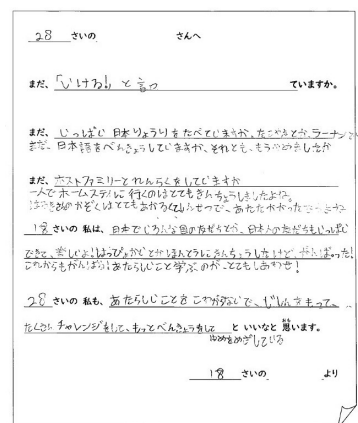 28 さいの さんへ
まだ、「いける!」と言っ ていますか。
まだ、いっぱい日本りょうりをたべていますか、たこやきとか、ラーメンとか
まだ、日本語をべんきょうしていますか、それとも、もうやめましたか
まだ、ホストファミリーとれんらくをしていますか
一人でホームステイに行くのはとてもきんちょうしましたよね。
はじめのかぞくはとてもあかるくて、しんせつで、あたたかかった
18 さいの 私は、日本でいろんな国のともだちとか、日本人のともだちもいっぱい
できて、楽しいよ!はっぴょうかいとかほんとうにきんちょうしたけど、がんばった!
これからもがんばる!あたらしいこと学ぶのが、とてもしあわせ!
28 さいの 私も、あたらしいことをこわがらないで、じしんをもって、
たくさんチャレンジをして、もっとべんきょうをして と いいなと 思います。
おも
ゆめをめざしている
18 さいの より